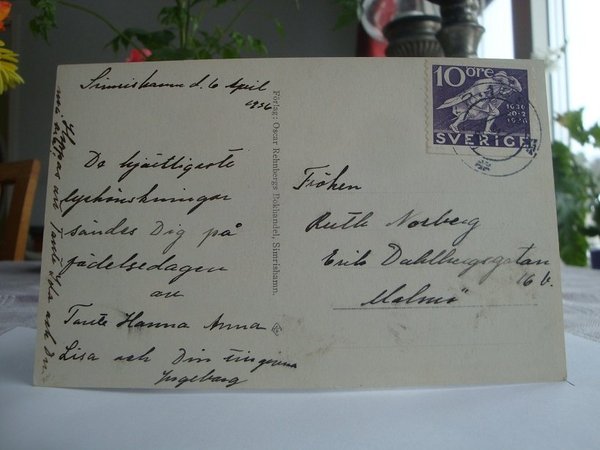 Simrishamn d. 6 April
1936
De hjärtligaste
lyckönskningar
sändes Dig på
födelsedagen
av
Tante Hanna Anna
Lisa och Din
Ingeborg
Förlag: Oscar Rehnbergs Bokhandel, Simrishamn.
10 ÖRE
1636
1936
SVERIGE
Fröken
Ruth Norberg
Erik Dahlbergsgatan
16 b.
Malmö